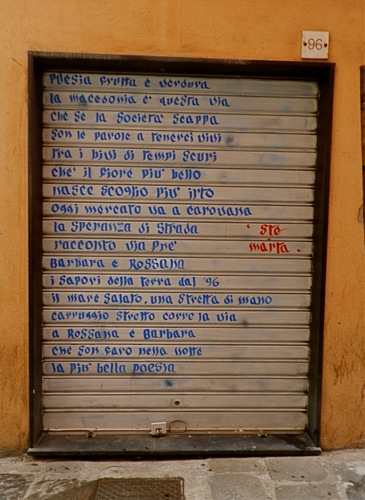 96
poesia frutta e verdura
la macedonia e' questa via
che se la Società scappa
Son le parole a tenerci vivi
tra i bivi di tempi scuri
che' il fiore piu' bello
nasce scoglio piu' irto
oggi mercato va a carovana
la speranza di strada
racconto via Pre'
Ste
marta.
Barbara e Rossana
i sapori della terra dal '96
il mare salato, una stretta di mano
carruggio stretto corre la via
a Rossana e Barbara
che son faro nella notte
la piu' bella poesia